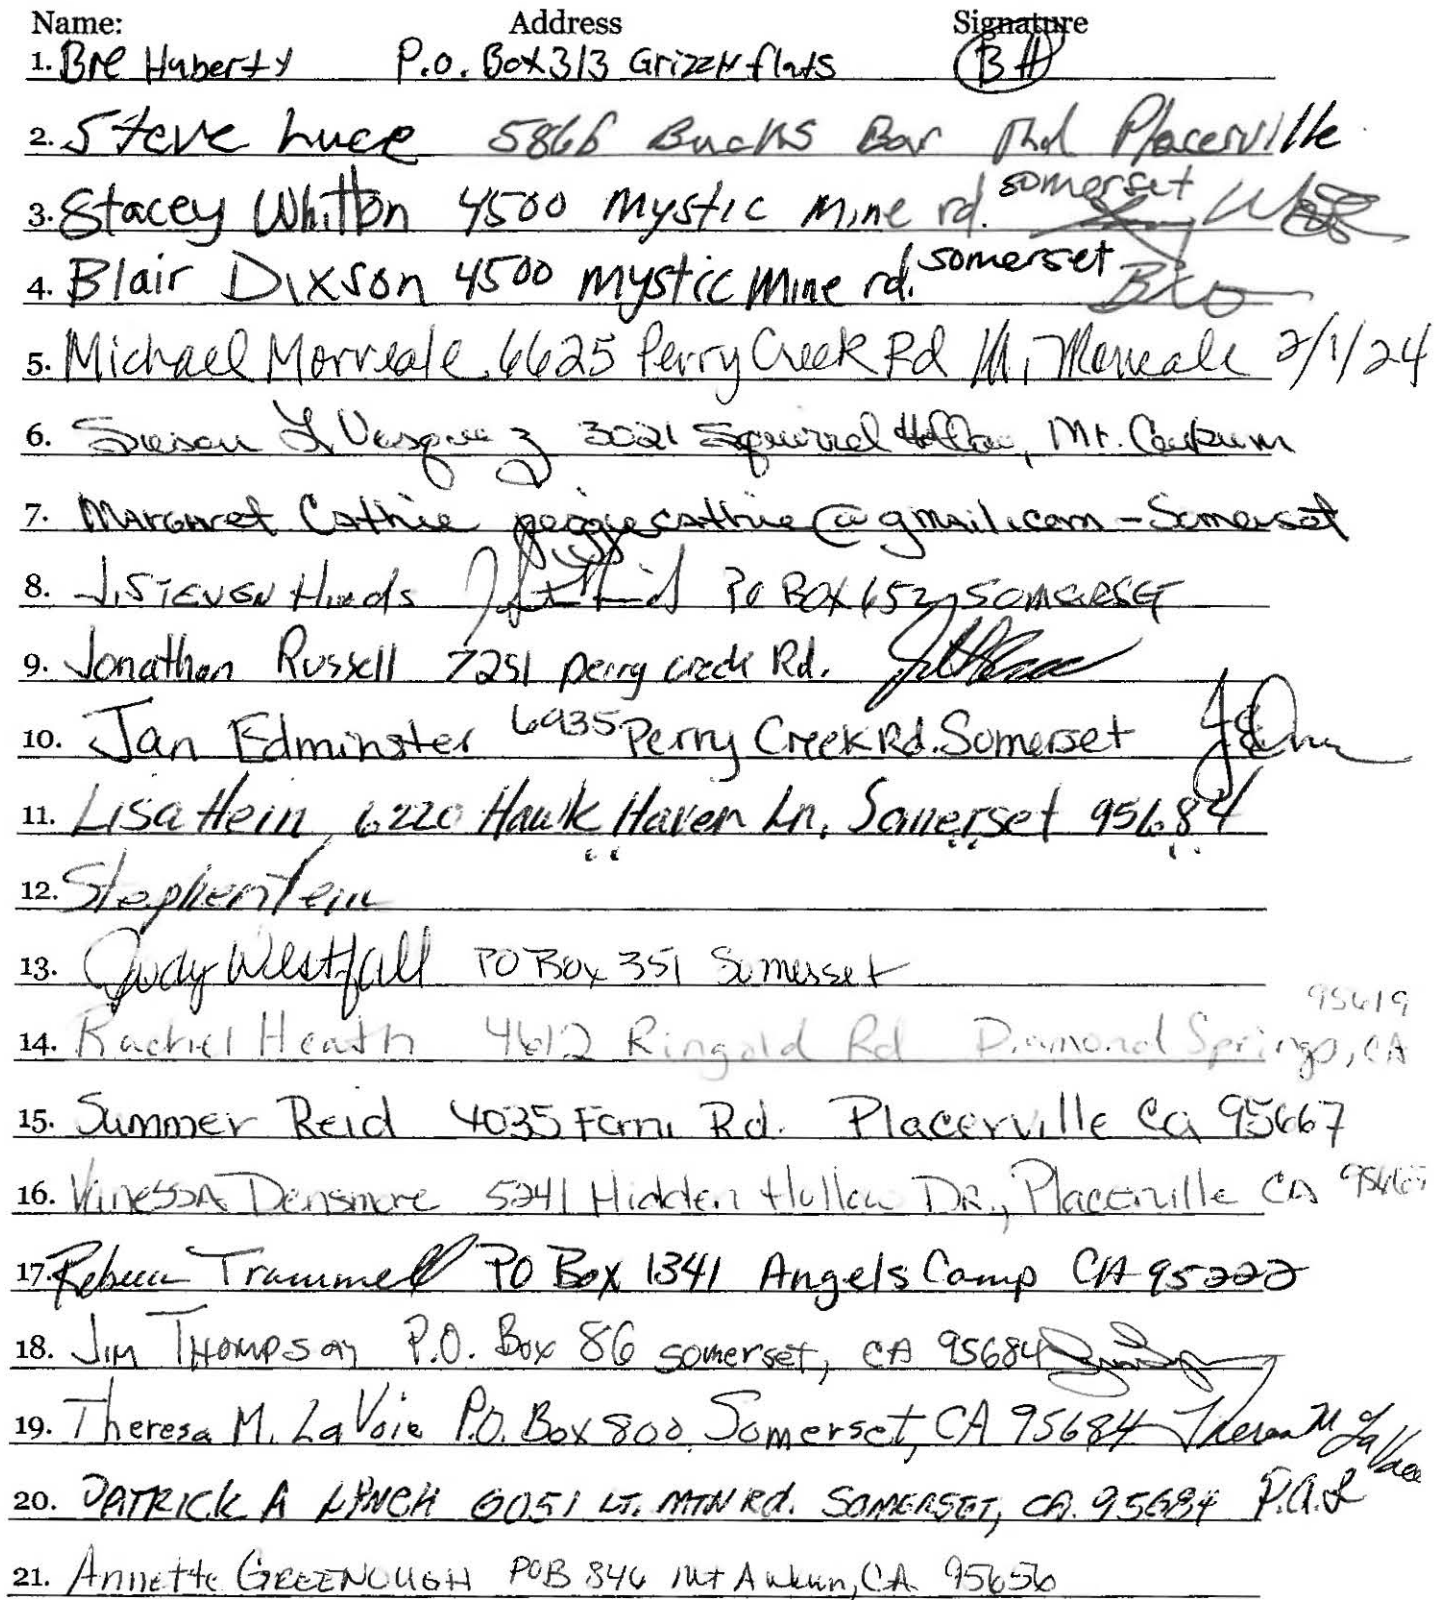 Name: Address Signature
1. Bre Huberty P.O. Box 313 Grizzly flats BH
2. Steve Luce 5866 Bucks Bar Rd Placerville
3. Stacey Whitton 4500 Mystic Mine rd. somerset
4. Blair Dixson 4500 Mystic Mine rd. somerset
5. Michael Morreale 6625 Perry Creek Rd M. Morreale 2/1/24
6. Susan L Vasquez 3021 Squirrel Hollow, Mt. Aukum
7. Margaret Cathie peggiecathie@gmail.com - Somerset
8. J. STEVEN Hinds PO BOX 652 SOMERSET
9. Jonathan Russell 7251 perry creek Rd.
10. Jan Edminster 6935 Perry Creek Rd. Somerset
11. Lisa Hein, 6220 Hawk Haven Ln, Somerset 95684
12. Stephen Hein
13. Judy Westfall PO Box 351 Somerset
14. Rachel Heath 4612 Ringold Rd Diamond Springs, CA 95619
15. Summer Reid 4035 Forni Rd. Placerville Ca 95667
16. Vanessa Densmore 5241 Hidden Hollow DR., Placerville CA 95667
17. Rebecca Trammell PO Box 1341 Angels Camp CA 95222
18. JIM THOMPSON P.O. Box 86 somerset, CA 95684
19. Theresa M. LaVoie P.O. Box 800 Somerset, CA 95684 Theresa M. LaVoie
20. PATRICK A LYNCH 6051 LT. MTN Rd. SOMERSET, CA. 95684 P.A.L
21. Annette GREENOUGH POB 846 Mt Aukum, CA 95656